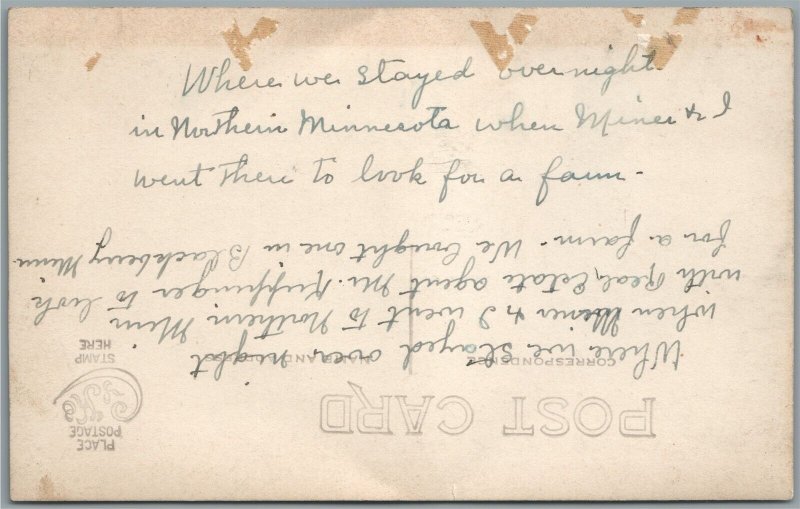 Where we stayed over night
in Northern Minnesota when Miner & I
went there to look for a farm -
Where we stayed over night
when Miner & I went to Northern Minn
with Real Estate agent Mr. to look
for a farm. We bought one in Blackberry Minn
POST CARD
CORRESPONDENCE
NAME AND ADDRESS
PLACE
POSTAGE
STAMP
HERE